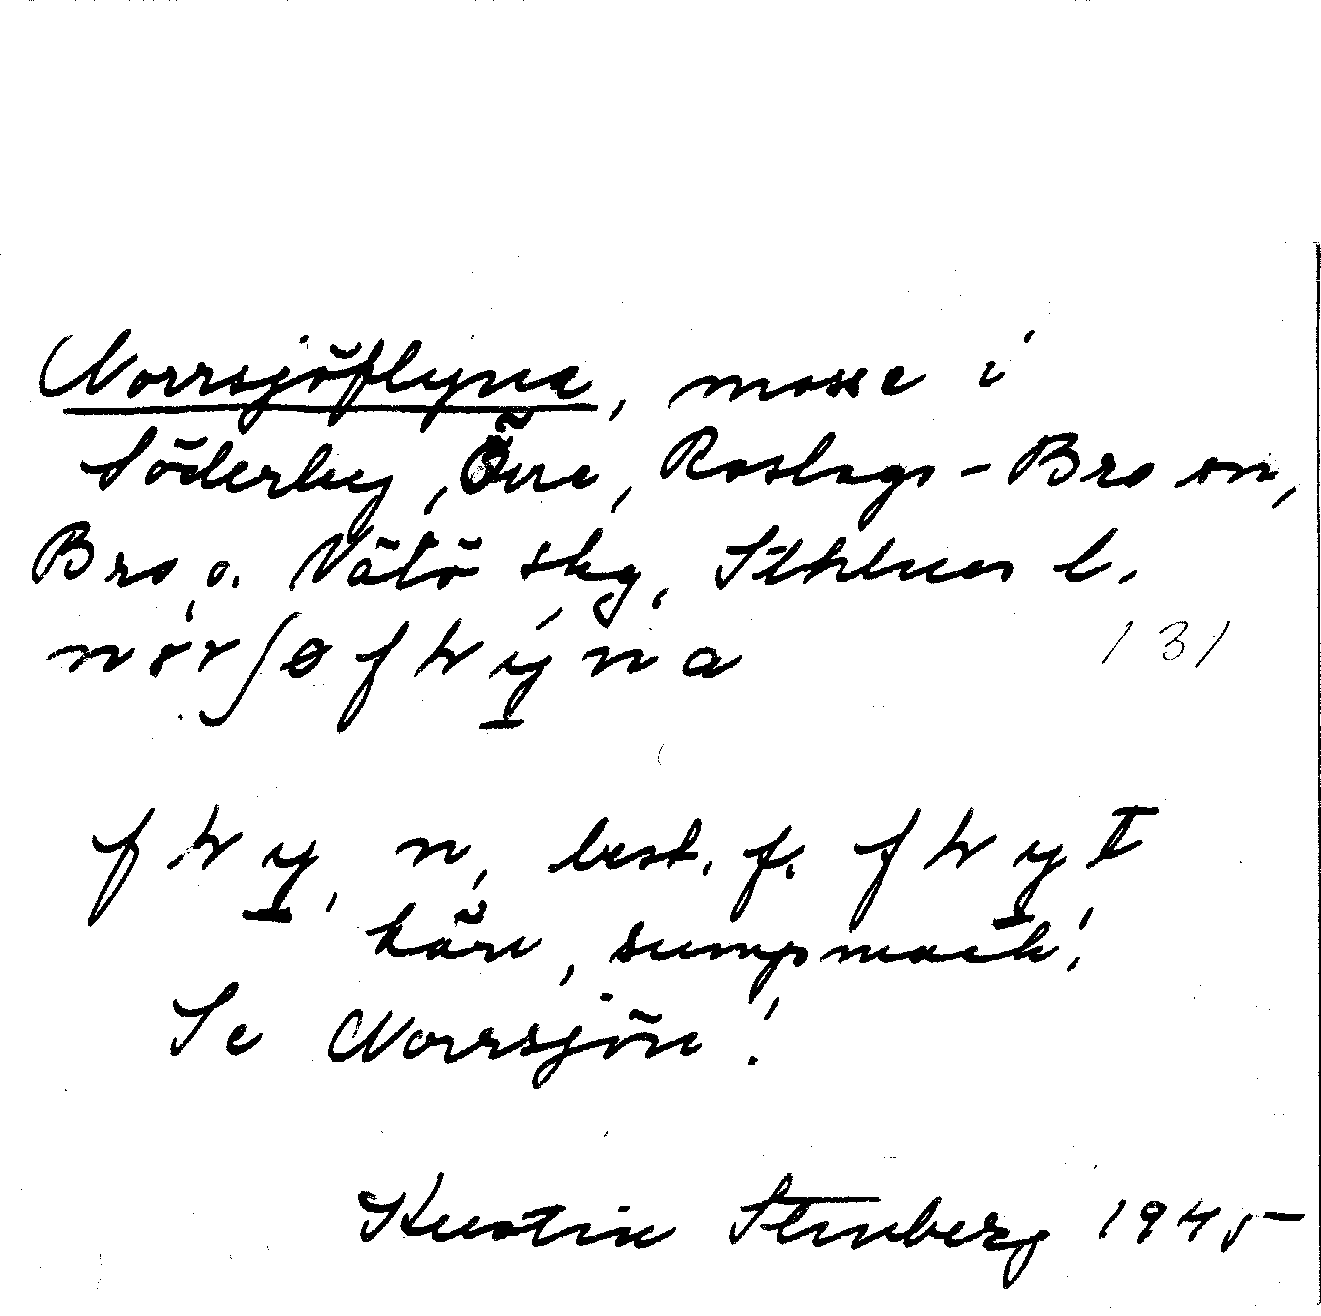 Norrsjöflyna, mosse i
Söderby, Övre, Roslags-Bro sn,
Bro o. Vätö skg, Sthlms l.
nørʃøfɫýna /3/
fɫy, n, best. f. fɫyt
kärr, sumpmark!
Se Norrsjön!
Kerstin Stenberg 1945